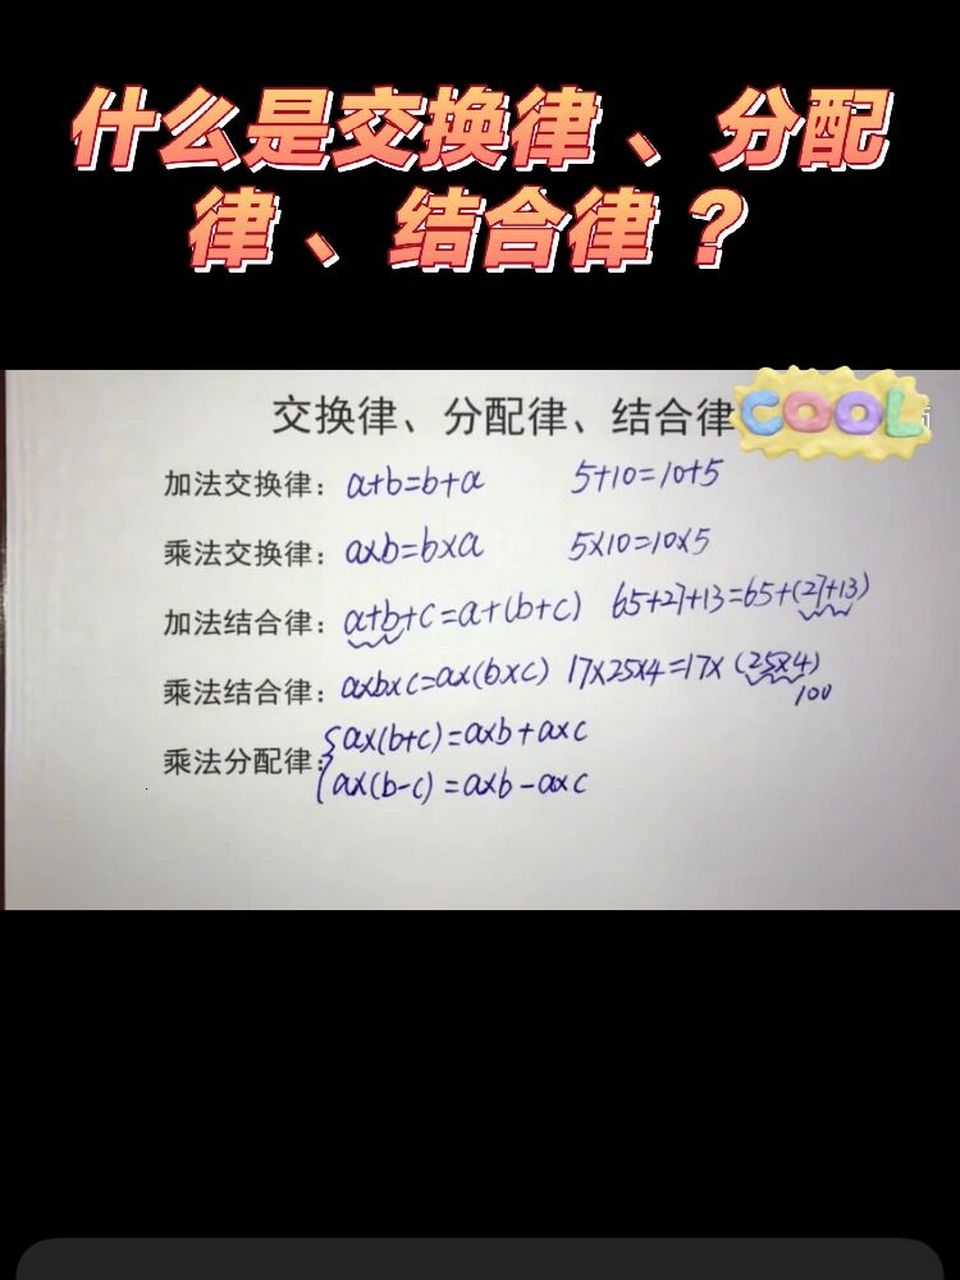 什么是交换律、分配
律、结合律?
交换律、分配律、结合律
COOL
加法交换律: a+b=b+a 5+10=10+5
乘法交换律: a×b=b×a 5×10=10×5
加法结合律: a+b+c=a+(b+c) 65+27+13=65+(27+13)
乘法结合律: a×b×c=a×(b×c) 17×25×4=17×(25×4)
100
乘法分配律: a×(b+c)=a×b+a×c
a×(b-c)=a×b-a×c